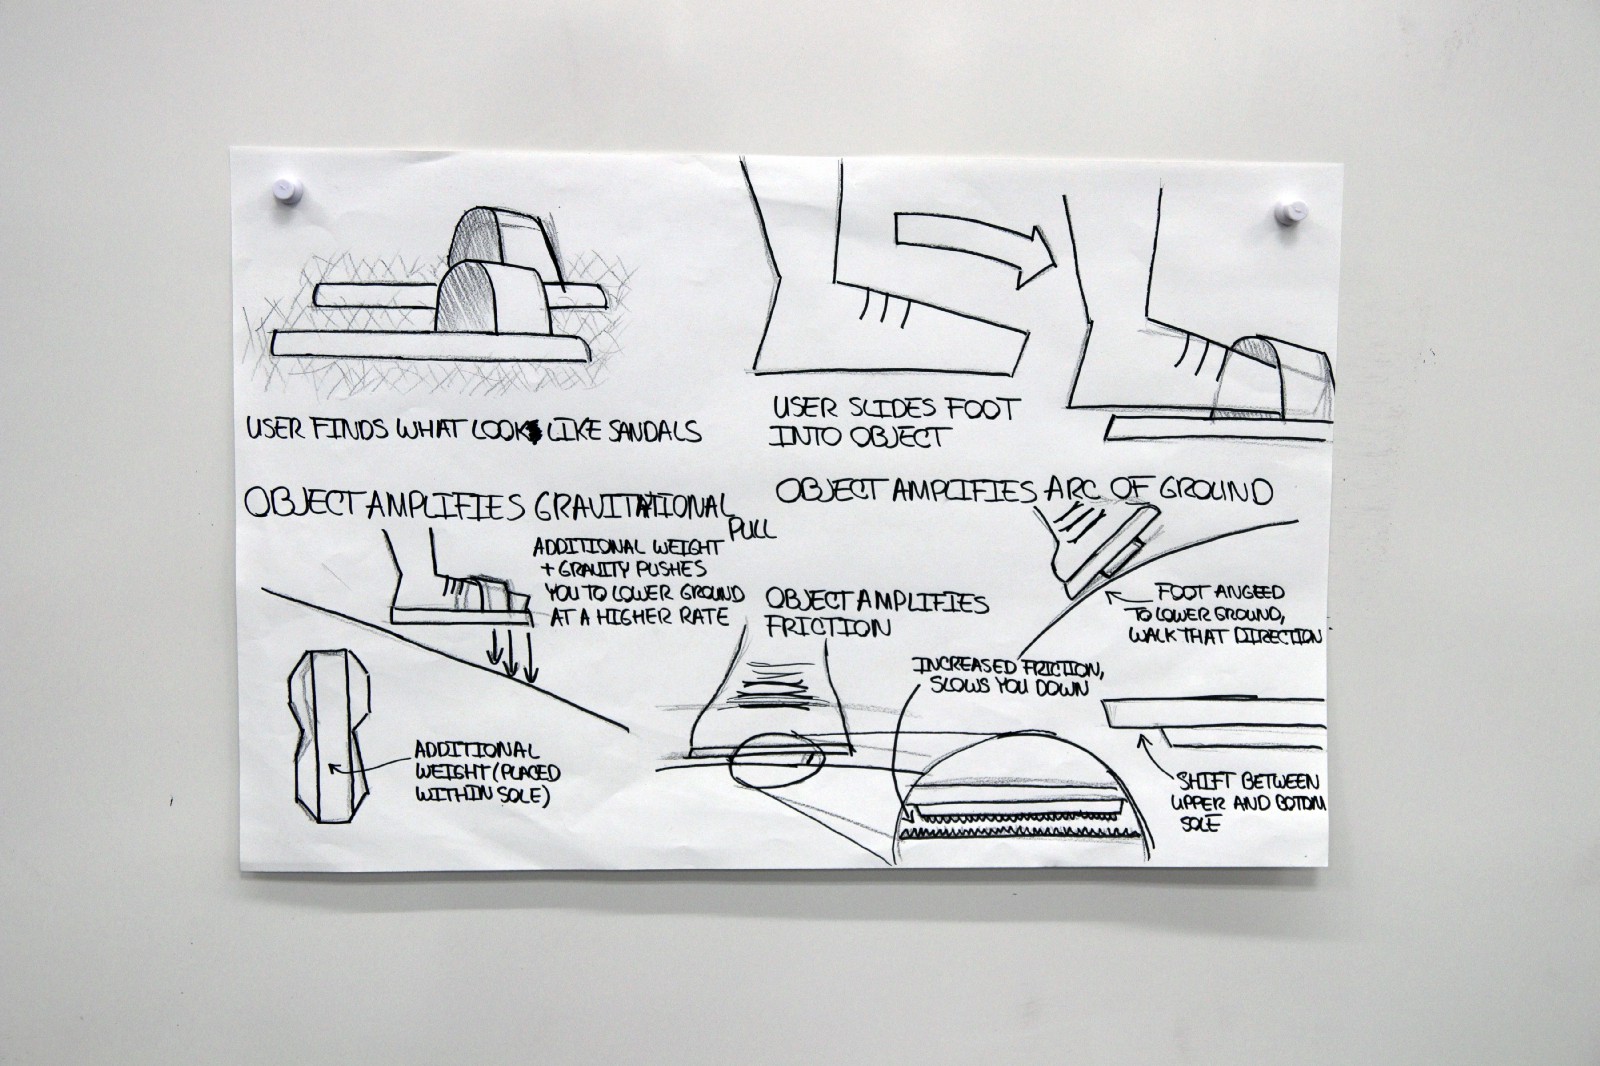 USER FINDS WHAT LOOK LIKE SANDALS
USER SLIDES FOOT
INTO OBJECT
OBJECT AMPLIFIES GRAVITATIONAL
PULL
ADDITIONAL WEIGHT
+ GRAVITY PUSHES
YOU TO LOWER GROUND
AT A HIGHER RATE
ADDITIONAL
WEIGHT (PLACED
WITHIN SOLE)
OBJECT AMPLIFIES
FRICTION
INCREASED FRICTION,
SLOWS YOU DOWN
OBJECT AMPLIFIES ARC OF GROUND
FOOT ANGLED
TO LOWER GROUND,
WALK THAT DIRECTION
SHIFT BETWEEN
UPPER AND BOTTOM
SOLE